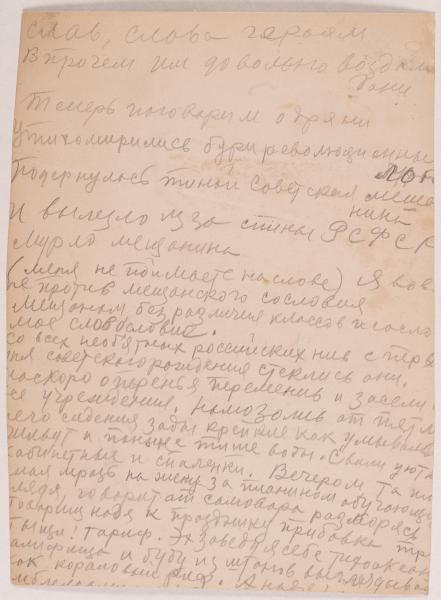 слав, слава героям
Впрочем им довольно воздали
дани
Теперь поговорим о дряни
Утихомирились бури революционных
лон
Подернулось тиной Советская меша
нина
И вылезло из за спины РСФСР
мурло мещанина
(меня не поймаете на слове) Я вов
не против мещанского сословия
Мещанам без различия классов и сосло
мое славословие.
со всех необъятных российских нив с перв
дня советского рождения стеклись они,
наскоро оперенья переменив и засели
се учреждения. Намозолив от пятил
него сидения зады крепкие как умывальн
живут и поныне тише воды. Свили уютн
кабинеты и спаленки. Вечером та ил
ная мразь на жену за пианином обучающ
глядя, говорит от самовара разморясь
товарищ надя к празднику прибавка
тыщи. тариф. Эх заведу я себе тихоокеан
алифища и буду из штанов выглядыва
ак коралловый риф. А надя